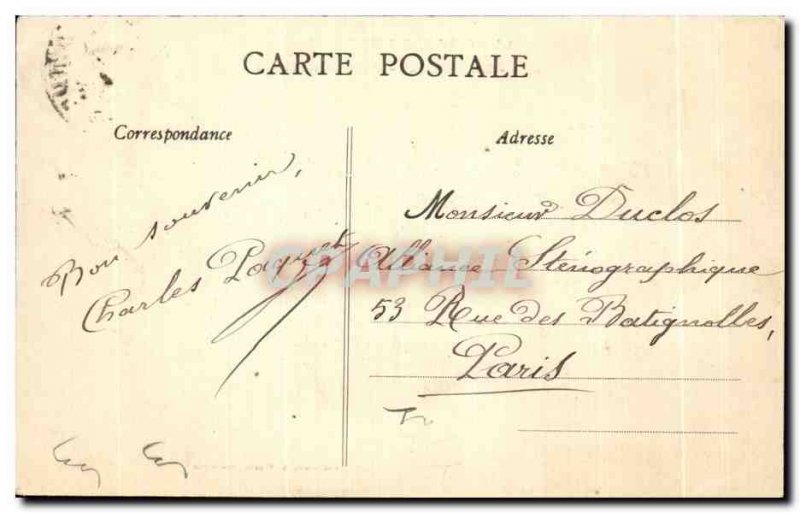 CARTE POSTALE
Correspondance
Adresse
Bon souvenir,
Charles Paquet
Monsieur Duclos
Alliance Sténographique
53 Rue des Batignolles,
Paris